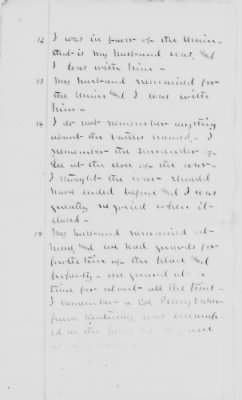 12 I was in favor of the Union
that is my husband was, and
I was with him -
13 My husband remained for
the Union and I was with
him -
14 I do not remember anything
about the battles named. I
remember the surrender of
Lee at the close of the war -
I thought the war should
have ended before and I was
greatly rejoiced when it
closed -
15 My husband remained at
home and we had guards for
protection of the place and
property - one guard at a
time for about all the time -
I remember a Col
from Kentucky was encamped